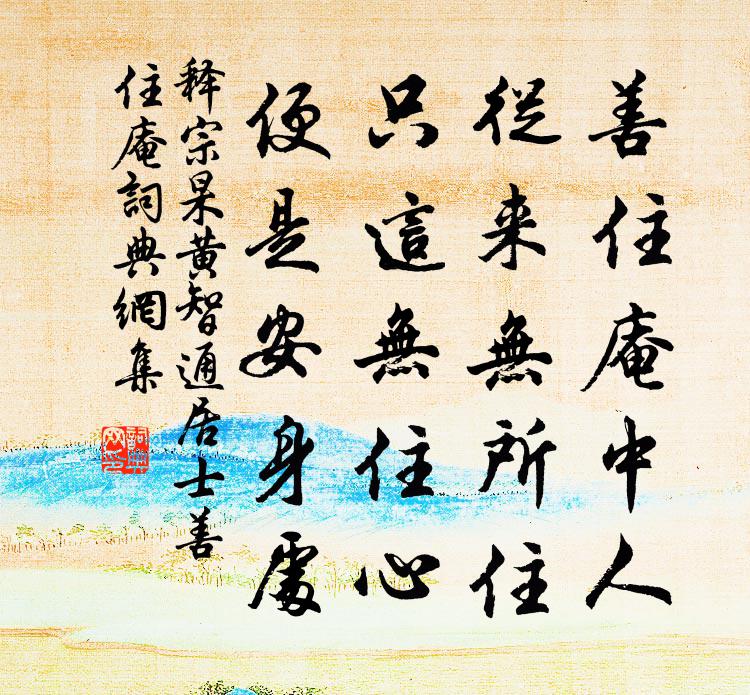 善住庵中人
從来無所住
只這無住心
便是安身處
释宗杲黄智通居士善
住庵詞典網集